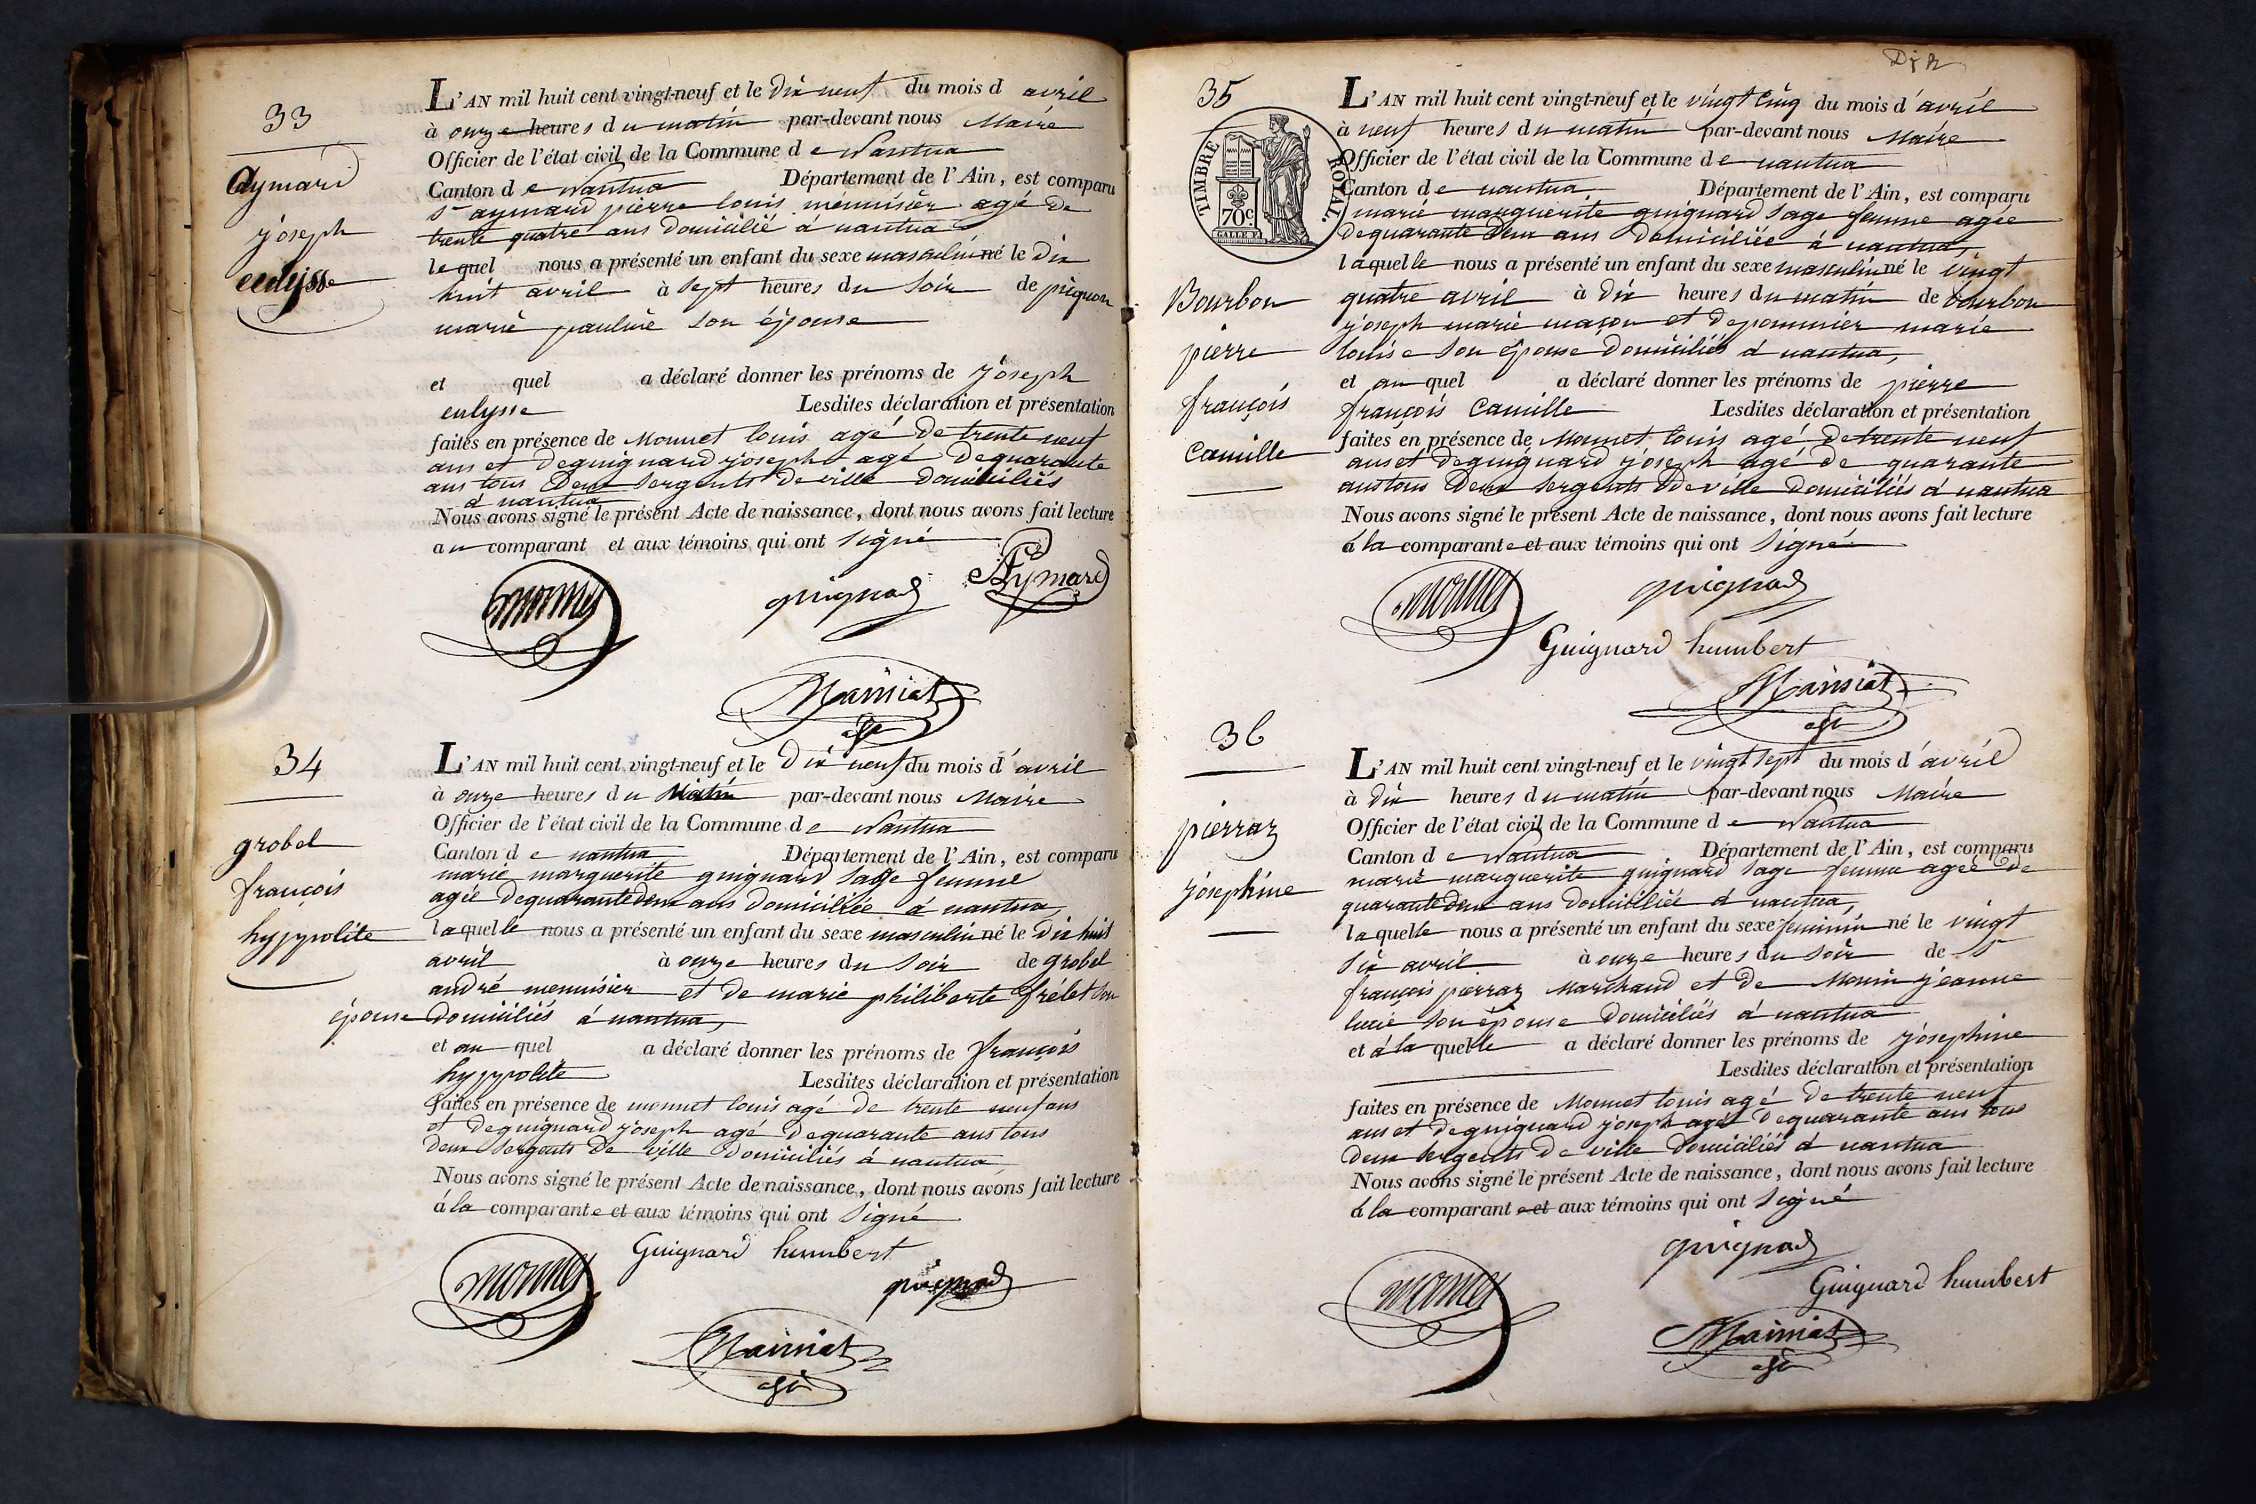 33
Aymard
joseph
eulysse
L'AN mil huit cent vingt-neuf et le dix neuf du mois d avril
à onze heures du matin par-devant nous Maire
Officier de l'état civil de la Commune de Nantua
Canton de Nantua Département de l'Ain, est comparu
Sr aymard pierre louis menuisier agé de
trente quatre ans domicilié à nantua
lequel nous a présenté un enfant du sexe masculin né le dix
huit avril à sept heures du soir de piquon
marie pauline son épouse
et quel a déclaré donner les prénoms de joseph
eulysse Lesdites déclaration et présentation
faites en présence de Monnet louis agé de trente neuf
ans et de guignard joseph agé de quarante
ans tous deux sergents de ville domiciliés
à nantua
Nous avons signé le présent Acte de naissance, dont nous avons fait lecture
au comparant et aux témoins qui ont signé
monnet
guignard
Aymard
Mainiat
34
grobel
françois
hyppolite
L'AN mil huit cent vingt-neuf et le dix neuf du mois d'avril
à onze heures du Matin par-devant nous Maire
Officier de l'état civil de la Commune de Nantua
Canton de nantua Département de l'Ain, est comparu
marie marguerite guignard sage femme
agée de quarante deux ans domiciliée à nantua,
laquelle nous a présenté un enfant du sexe masculin né le dix huit
avril à onze heures du soir de grobel
andré menuisier et de marie philiberte frélet son
épouse domiciliés à nantua,
et au quel a déclaré donner les prénoms de françois
hyppolite Lesdites déclaration et présentation
faites en présence de monnet louis agé de trente neuf ans
et de guignard joseph agé de quarante ans tous
deux sergents de ville domiciliés à nantua
Nous avons signé le présent Acte de naissance, dont nous avons fait lecture
à la comparante et aux témoins qui ont signé
Guignard humbert
monnet
guignard
Mainiat
35
TIMBRE ROYAL.
70c
Bourbon
pierre
françois
Camille
L'AN mil huit cent vingt-neuf et le vingt cinq du mois d'avril
à neuf heures du matin par-devant nous Maire
Officier de l'état civil de la Commune de nantua
Canton de nantua Département de l'Ain, est comparu
marie marguerite guignard sage femme agée
de quarante deux ans domiciliée à nantua,
laquelle nous a présenté un enfant du sexe masculin né le vingt
quatre avril à dix heures du matin de bourbon
joseph marie maçon et depommier marie
louise son épouse domiciliés à nantua,
et au quel a déclaré donner les prénoms de pierre
françois Camille Lesdites déclaration et présentation
faites en présence de Monnet louis agé de trente neuf
ans et de guignard joseph agé de quarante
ans tous deux sergents de ville domiciliés à nantua
Nous avons signé le présent Acte de naissance, dont nous avons fait lecture
à la comparante et aux témoins qui ont signé
monnet
guignard
Guignard humbert
Mainiat
36
pierraz
josephine
L'AN mil huit cent vingt-neuf et le vingt sept du mois d'avril
à dix heures du matin par-devant nous Maire
Officier de l'état civil de la Commune de Nantua
Canton de Nantua Département de l'Ain, est comparu
marie marguerite guignard sage femme agée de
quarante deux ans domiciliée à nantua,
laquelle nous a présenté un enfant du sexe feminin né le vingt
six avril à onze heures du soir de Sr
françois pierraz Marchand et de Monin jeanne
lucie son épouse domiciliés à nantua
et à la quelle a déclaré donner les prénoms de josephine
Lesdites déclaration et présentation
faites en présence de Monnet louis agé de trente neuf
ans et de guignard joseph agé de quarante ans tous
deux sergents de ville domiciliés à nantua
Nous avons signé le présent Acte de naissance, dont nous avons fait lecture
à la comparante et aux témoins qui ont signé
guignard
monnet
Guignard humbert
Mainiat